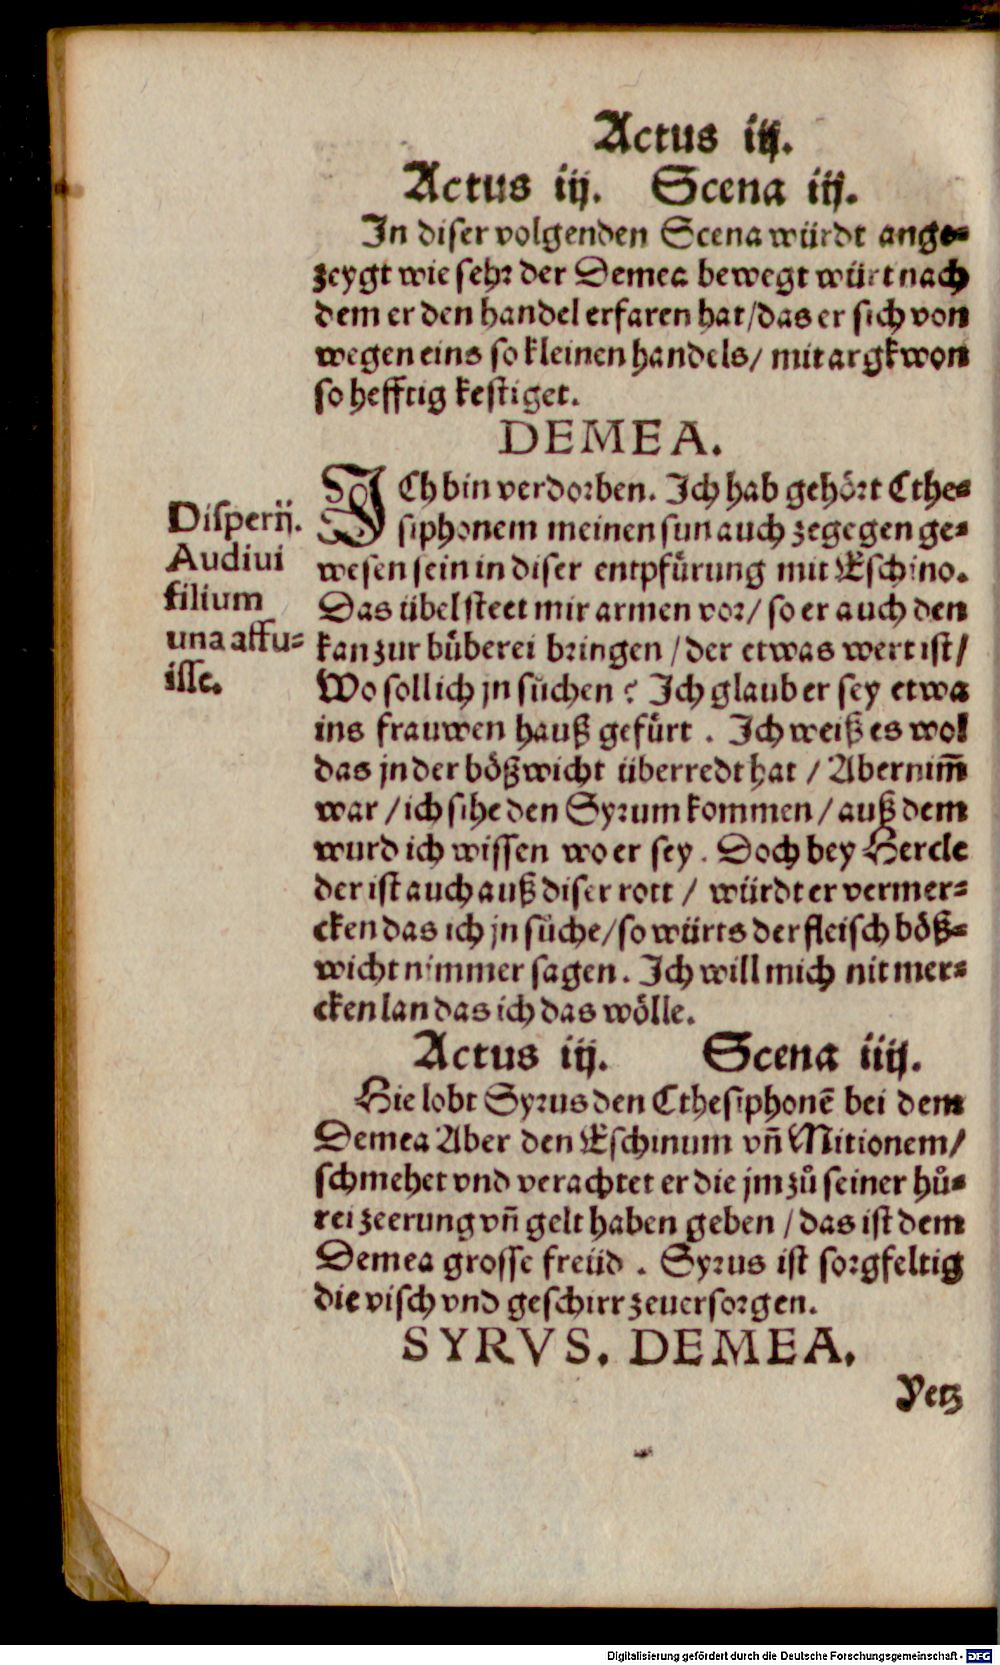 Actus iij.
Actus iij. Scena iij.
In diser volgenden Scena würdt ange=
zeygt wie sehr der Demea bewegt würt nach
dem er den handel erfaren hat/das er sich von
wegen eins so kleinen handels/ mit argkwon
so hefftig kestiget.
DEMEA.
ICh bin verdorben. Ich hab gehört Cthe=
siphonem meinen sun auch zegegen ge=
wesen sein in diser entpfürung mit Eschino.
Das übel steet mir armen vor/ so er auch den
kan zur büberei bringen /der etwas wert ist/
Wo soll ich jn sůchen? Ich glaub er sey etwa
ins frauwen hauß gefürt . Ich weiß es wol
das jn der bößwicht überredt hat / Aber nim̄
war /ich sihe den Syrum kommen/ auß dem
wurd ich wissen wo er sey. Doch bey Hercle
der ist auch auß diser rott / würdt er vermer=
cken das ich jn sůche/so würts der fleisch böß=
wicht nimmer sagen. Ich will mich nit mer=
cken lan das ich das wölle.
Disperij.
Audiui
filium
una affu=
isse.
Actus iij. Scena iiij.
Hie lobt Syrus den Cthesiphonē bei dem
Demea Aber den Eschinum vñ Mitionem/
schmehet vnd verachtet er die jm zů seiner hů=
rei zeerung vñ gelt haben geben /das ist dem
Demea grosse freüd . Syrus ist sorgfeltig
die visch vnd geschirr zeuersorgen.
SYRVS. DEMEA.
Yetz
Digitalisierung gefördert durch die Deutsche Forschungsgemeinschaft - DFG